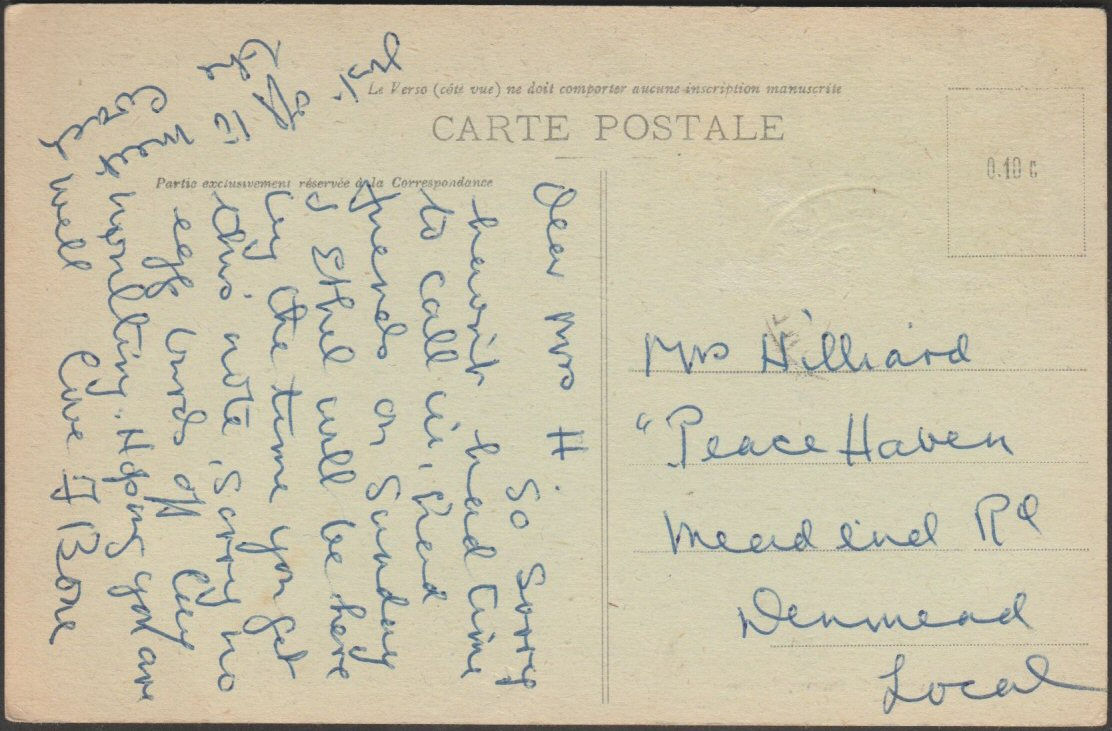 Le Verso (côté vue) ne doit comporter aucune inscription manuscrite
CARTE POSTALE
Partie exclusivement réservée à la Correspondance
0.10 c
Dear Mrs H
So Sorry
havint had time
to call in, had
friends on Sunday
& Ethel will be here
by the time you get
this note, sorry no
eggs birds off lay
& moulting. Hoping you are
well Love F Bone
Mrs Hilliard
"Peace Haven
Mead end Rd
Denmead
Local